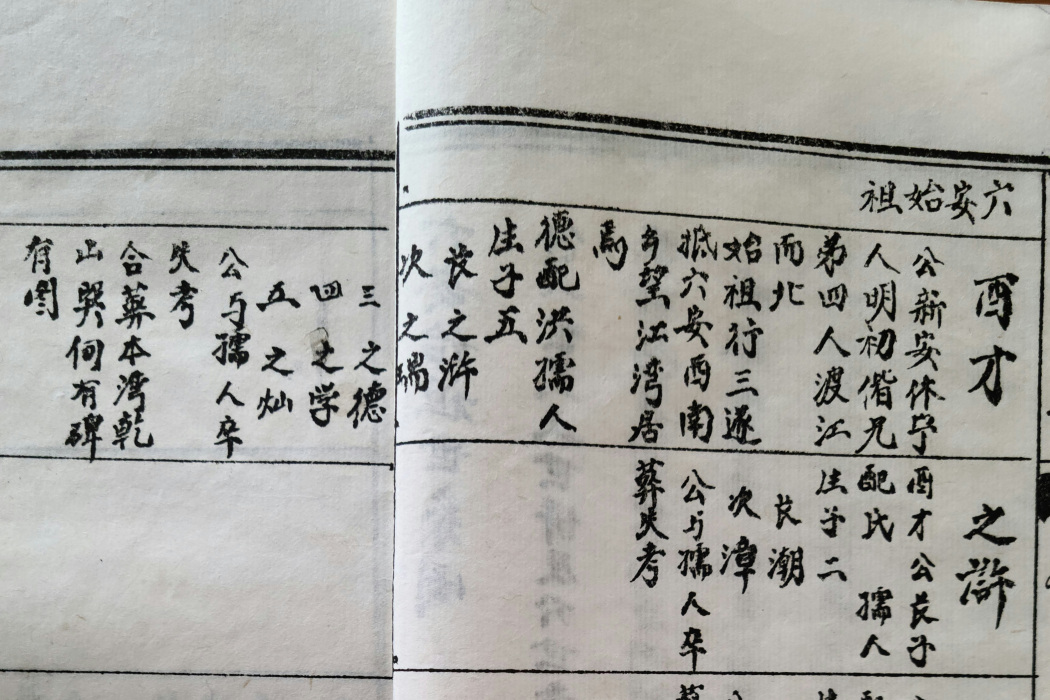 六安始祖
酉才
公新安休宁
人明初偕兄
弟四人渡江
而北
始祖行三遂
抵六安西南
乡望江湾居
焉
德配洪孺人
生子五
长之浒
次之瑞
三之德
四之学
五之灿
公与孺人卒
失考
合葬本湾乾
山巽向有碑
有图
之浒
酉才公长子
配氏 孺人
生子二
长潮
次漳
公与孺人卒
葬失考